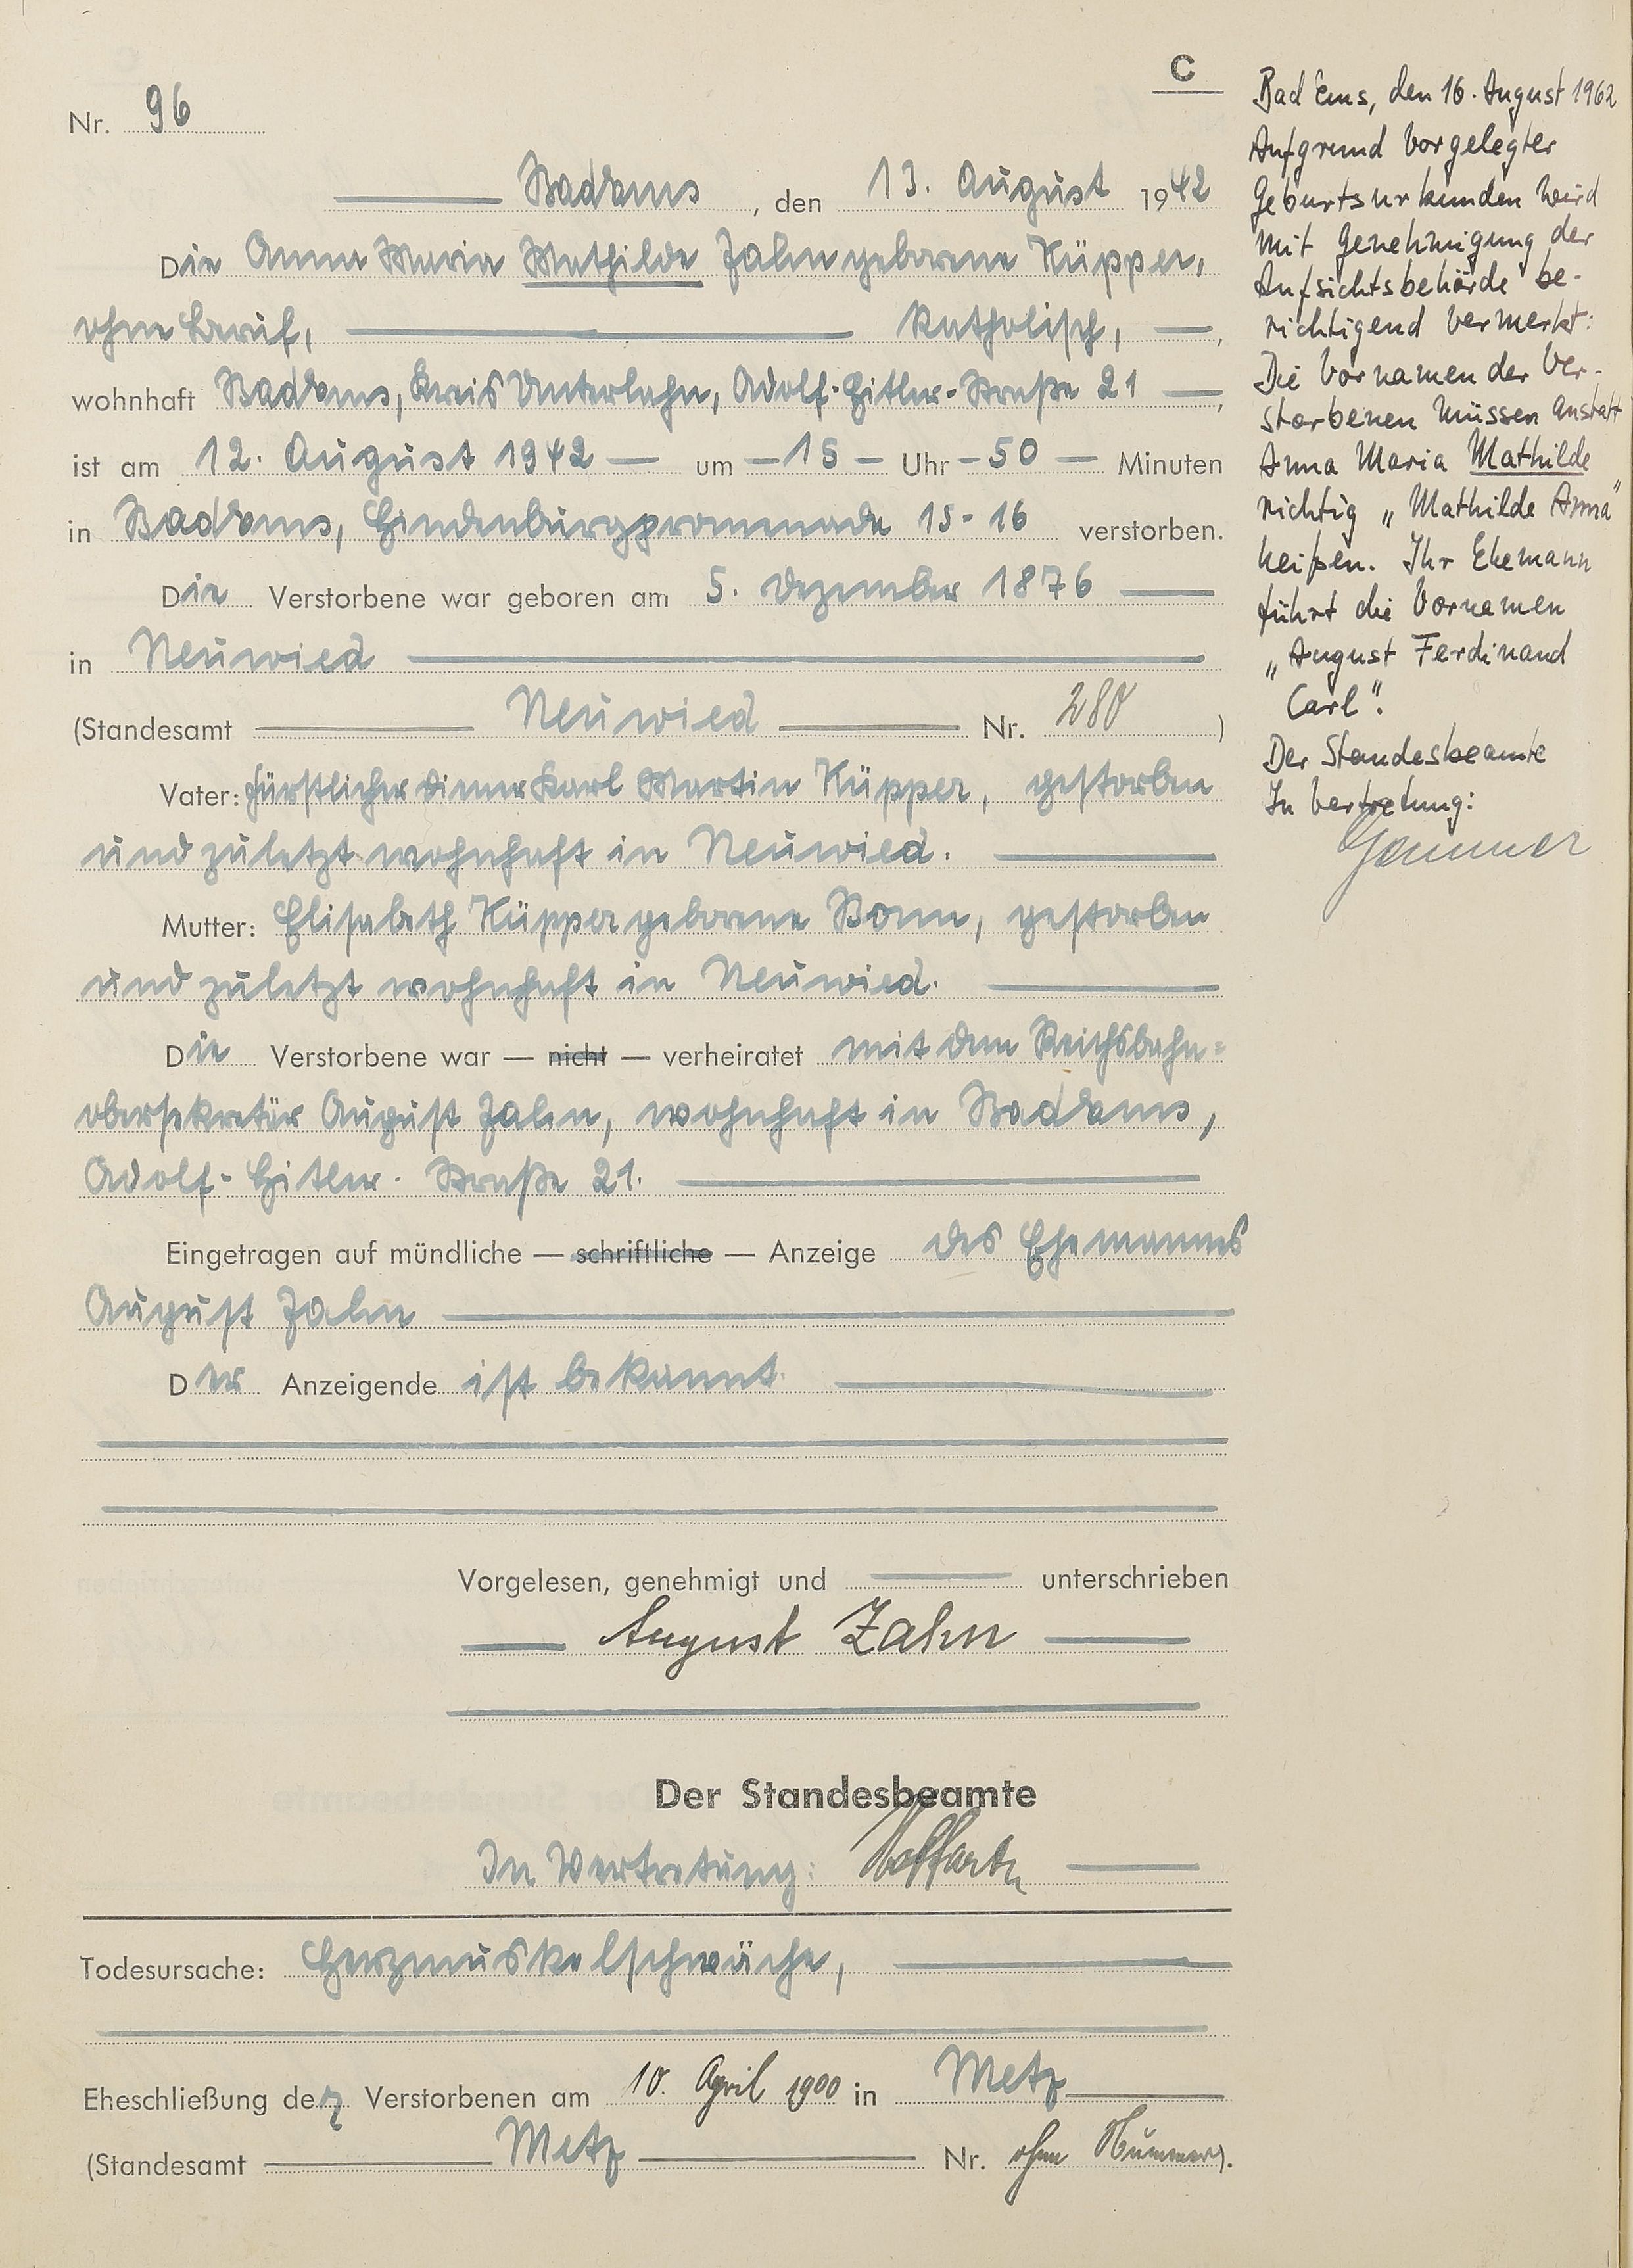 C
Nr. 96
Bad Ems, den 13. August 1942
Die Anna Maria Mathilde Zahn geborene Küpper,
ohne Beruf, katholisch,
wohnhaft Bad Ems, Kreis Unterlahn, Adolf-Hitler-Straße 21
ist am 12. August 1942 um 15 Uhr 50 Minuten
in Bad Ems, Hindenburgpromenade 15-16 verstorben.
Die Verstorbene war geboren am 5. Dezember 1876
in Neuwied
(Standesamt Neuwied Nr. 280)
Vater: Fürstlicher Diener Karl Martin Küpper, gestorben
und zuletzt wohnhaft in Neuwied.
Mutter: Elisabeth Küpper geborene Bonn, gestorben
und zuletzt wohnhaft in Neuwied.
Die Verstorbene war — nicht — verheiratet mit dem Reichsbahn-
obersekretär August Zahn, wohnhaft in Bad Ems,
Adolf-Hitler-Straße 21.
Eingetragen auf mündliche — schriftliche — Anzeige des Ehemannes
August Zahn
Der Anzeigende ist bekannt.
Vorgelesen, genehmigt und unterschrieben
August Zahn
Der Standesbeamte
In Vertretung:
Todesursache: Herzmuskelschwäche,
Eheschließung der Verstorbenen am 10. April 1900 in Metz
(Standesamt Metz Nr. ohne Nummer).
Bad Ems, den 16. August 1962
Aufgrund vorgelegter
Geburtsurkunden wird
mit Genehmigung der
Aufsichtsbehörde be-
richtigend vermerkt:
Die Vornamen der Ver-
storbenen müssen anstatt
Anna Maria Mathilde
richtig „Mathilde Anna"
heißen. Ihr Ehemann
führt die Vornamen
„August Ferdinand
Carl".
Der Standesbeamte
In Vertretung: